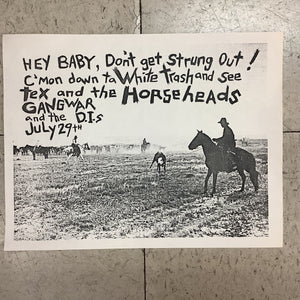 HEY BABY, Don't get Strung Out!
C'mon down ta White Trash and See
Tex and the Horseheads
GANGWAR
and the D.I.s
July 29th